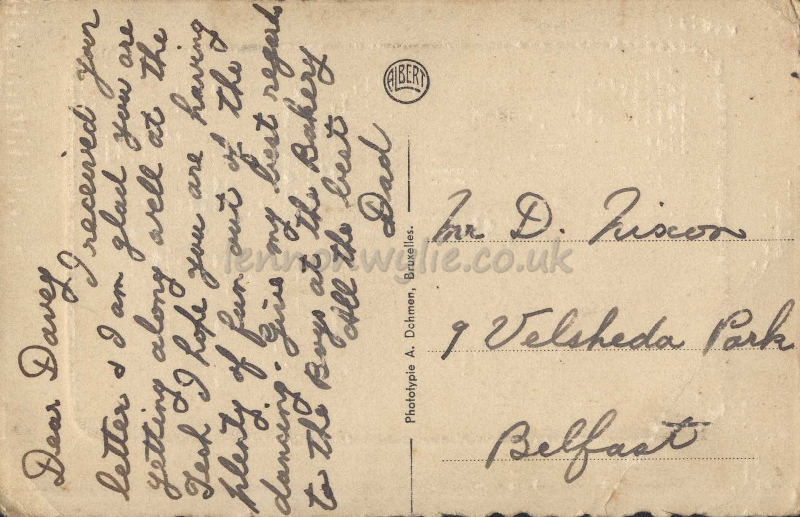 Dear Davey
I received your
letter & I am glad you are
getting along well at the
Tech I hope you are having
plenty of fun out of the
dancing. Give my best regards
to the Boys at the Bakery
All the best
Dad
ALBERT
Phototypie A. Dohmen, Bruxelles.
Mr D. Nixon
9 Velsheda Park
Belfast
lennonwylie.co.uk